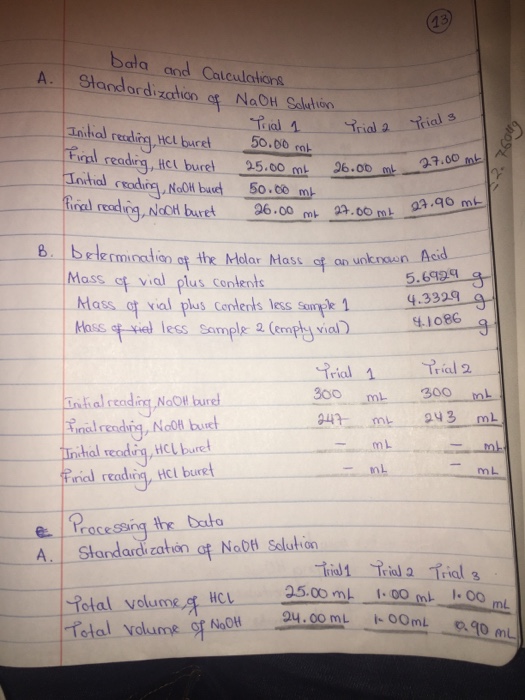 13
Data and Calculations
A. Standardization of NaOH Solution
Trial 1 Trial 2 Trial 3
Initial reading, HCl buret 50.00 mL
Final reading, HCl buret 25.00 mL 26.00 mL 27.00 mL
Initial reading, NaOH buret 50.00 mL
Final reading, NaOH buret 26.00 mL 27.00 mL 27.90 mL
B. Determination of the Molar Mass of an unknown Acid
Mass of vial plus contents 5.6929 g
Mass of vial plus contents less sample 1 4.3329 g
Mass of vial less sample 2 (empty vial) 4.1086 g
Trial 1 Trial 2
Initial reading, NaOH buret 300 mL 300 mL
Final reading, NaOH buret 247 mL 243 mL
Initial reading, HCl buret - mL - mL
Final reading, HCl buret - mL - mL
Processing the Data
A. Standardization of NaOH Solution
Trial 1 Trial 2 Trial 3
Total volume of HCl 25.00 mL 1.00 mL 1.00 mL
Total volume of NaOH 24.00 mL 1.00 mL 0.90 mL